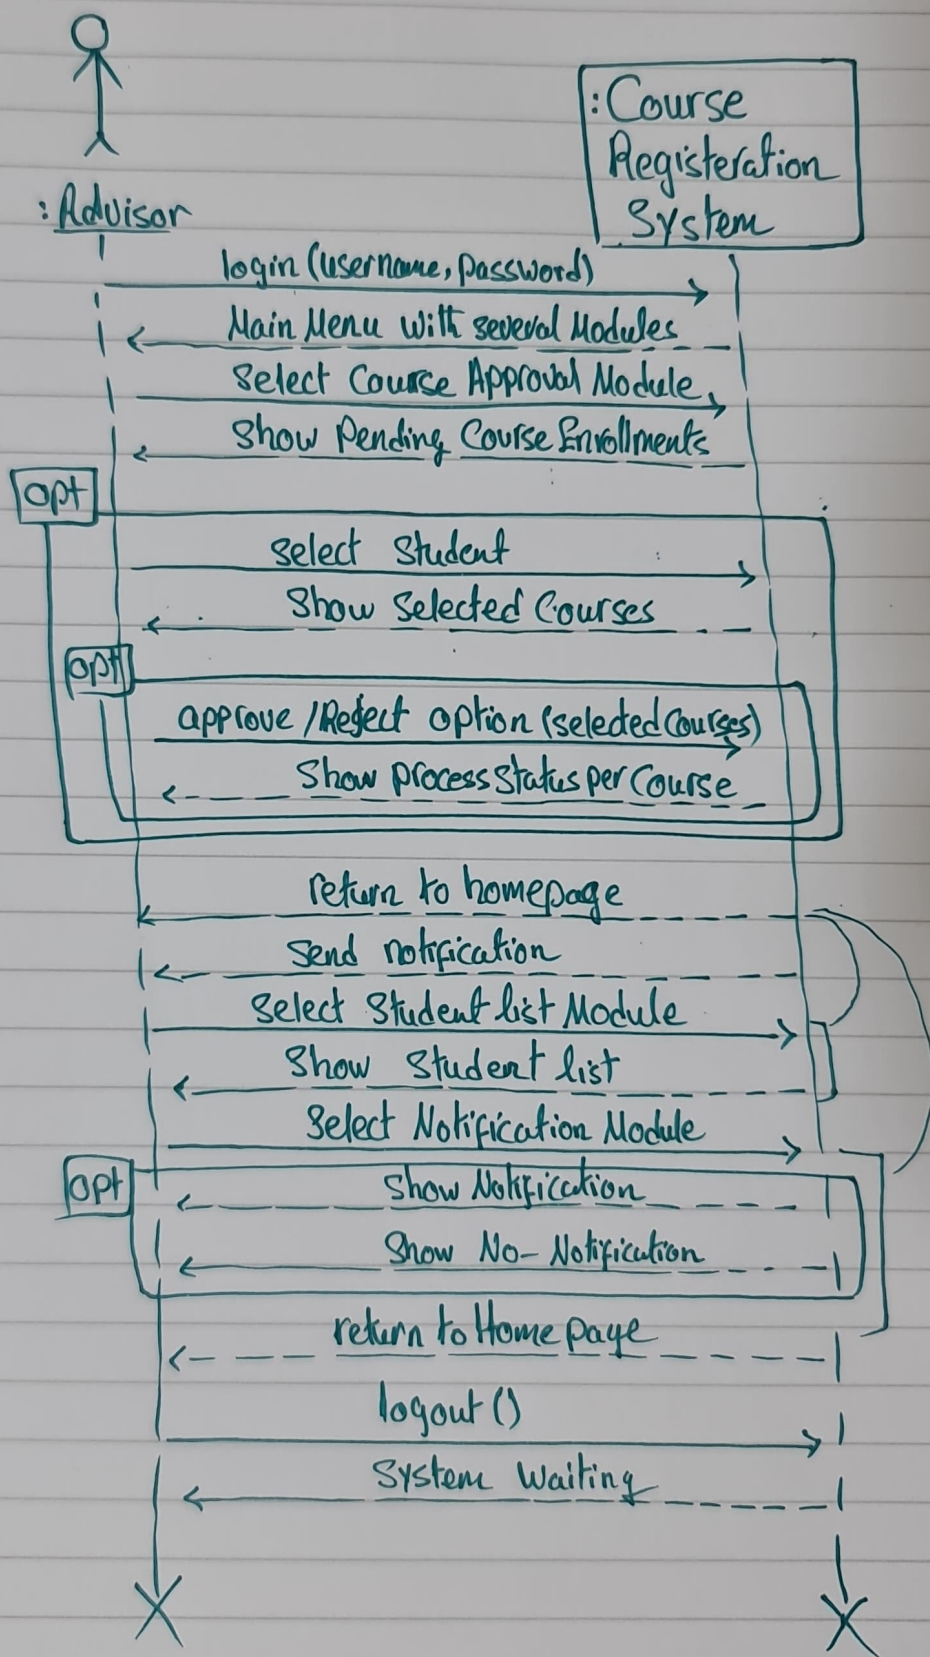 :Course
Registeration
System
:Advisor
login(username, password)
Main Menu with several Modules
Select Course Approval Module
Show Pending Course Enrollments
opt
Select Student
Show Selected Courses
opt
approve/Reject option(selected Courses)
Show process Status per Course
return to homepage
Send notification
Select Student list Module
Show Student list
Select Notification Module
opt
Show Notification
Show No-Notification
return to Home page
logout()
System Waiting